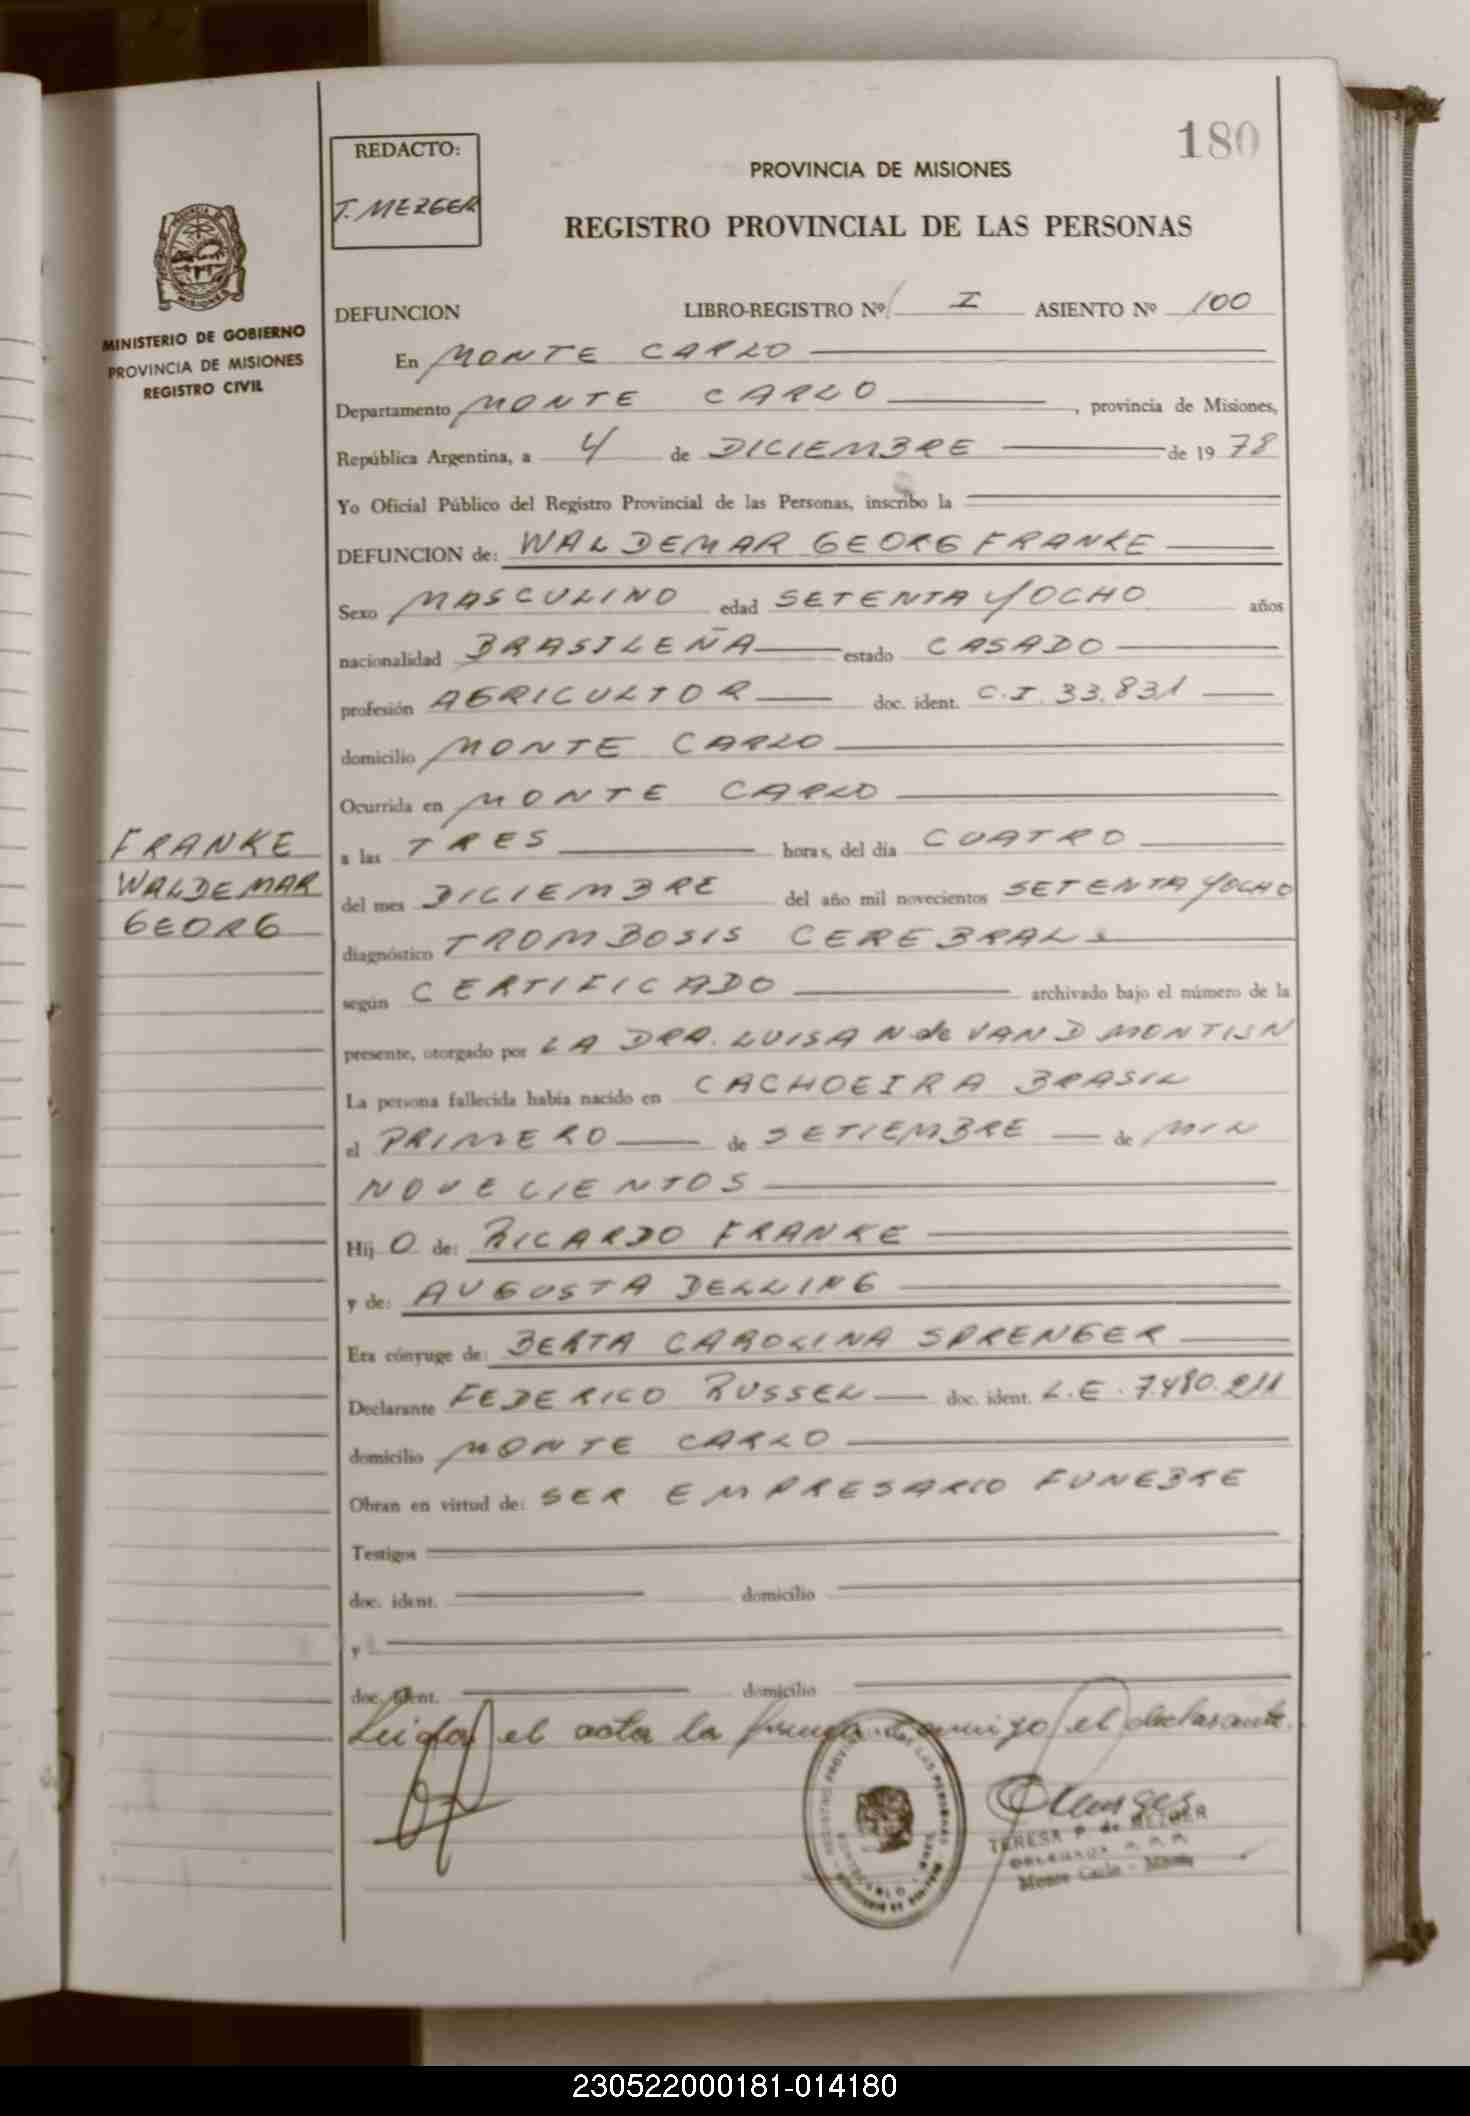 180
REDACTO:
T. MEZGER
PROVINCIA DE MISIONES
REGISTRO PROVINCIAL DE LAS PERSONAS
MINISTERIO DE GOBIERNO
PROVINCIA DE MISIONES
REGISTRO CIVIL
DEFUNCION LIBRO-REGISTRO Nº I ASIENTO Nº 100
En MONTE CARLO
Departamento MONTE CARLO, provincia de Misiones,
República Argentina, a 4 de DICIEMBRE de 1978
Yo Oficial Público del Registro Provincial de las Personas, inscribo la
DEFUNCION de: WALDEMAR GEORG FRANKE
Sexo MASCULINO edad SETENTA Y OCHO años
nacionalidad BRASILEÑA estado CASADO
profesión AGRICULTOR doc. ident. C.I. 33.831
domicilio MONTE CARLO
Ocurrida en MONTE CARLO
FRANKE
WALDEMAR
GEORG
a las TRES horas, del día CUATRO
del mes DICIEMBRE del año mil novecientos SETENTA Y OCHO
diagnóstico TROMBOSIS CEREBRAL
según CERTIFICADO archivado bajo el número de la
presente, otorgado por LA DRA. LUISA N de VAN D MONTIJN
La persona fallecida había nacido en CACHOEIRA BRASIL
el PRIMERO de SETIEMBRE de MIL
NOVECIENTOS
Hij O de: RICARDO FRANKE
y de: AUGUSTA DELLING
Era cónyuge de: BERTA CAROLINA SPRENGER
Declarante FEDERICO RUSSEL doc. ident. L.E. 7.480.211
domicilio MONTE CARLO
Obran en virtud de: SER EMPRESARIO FUNEBRE
Testigos
doc. ident. domicilio
y
doc. ident. domicilio
Leida el acta la firma conmigo el declarante.
TERESA P. de MEZGER
DELEGADA
Monte Carlo - Misiones
230522000181-014180